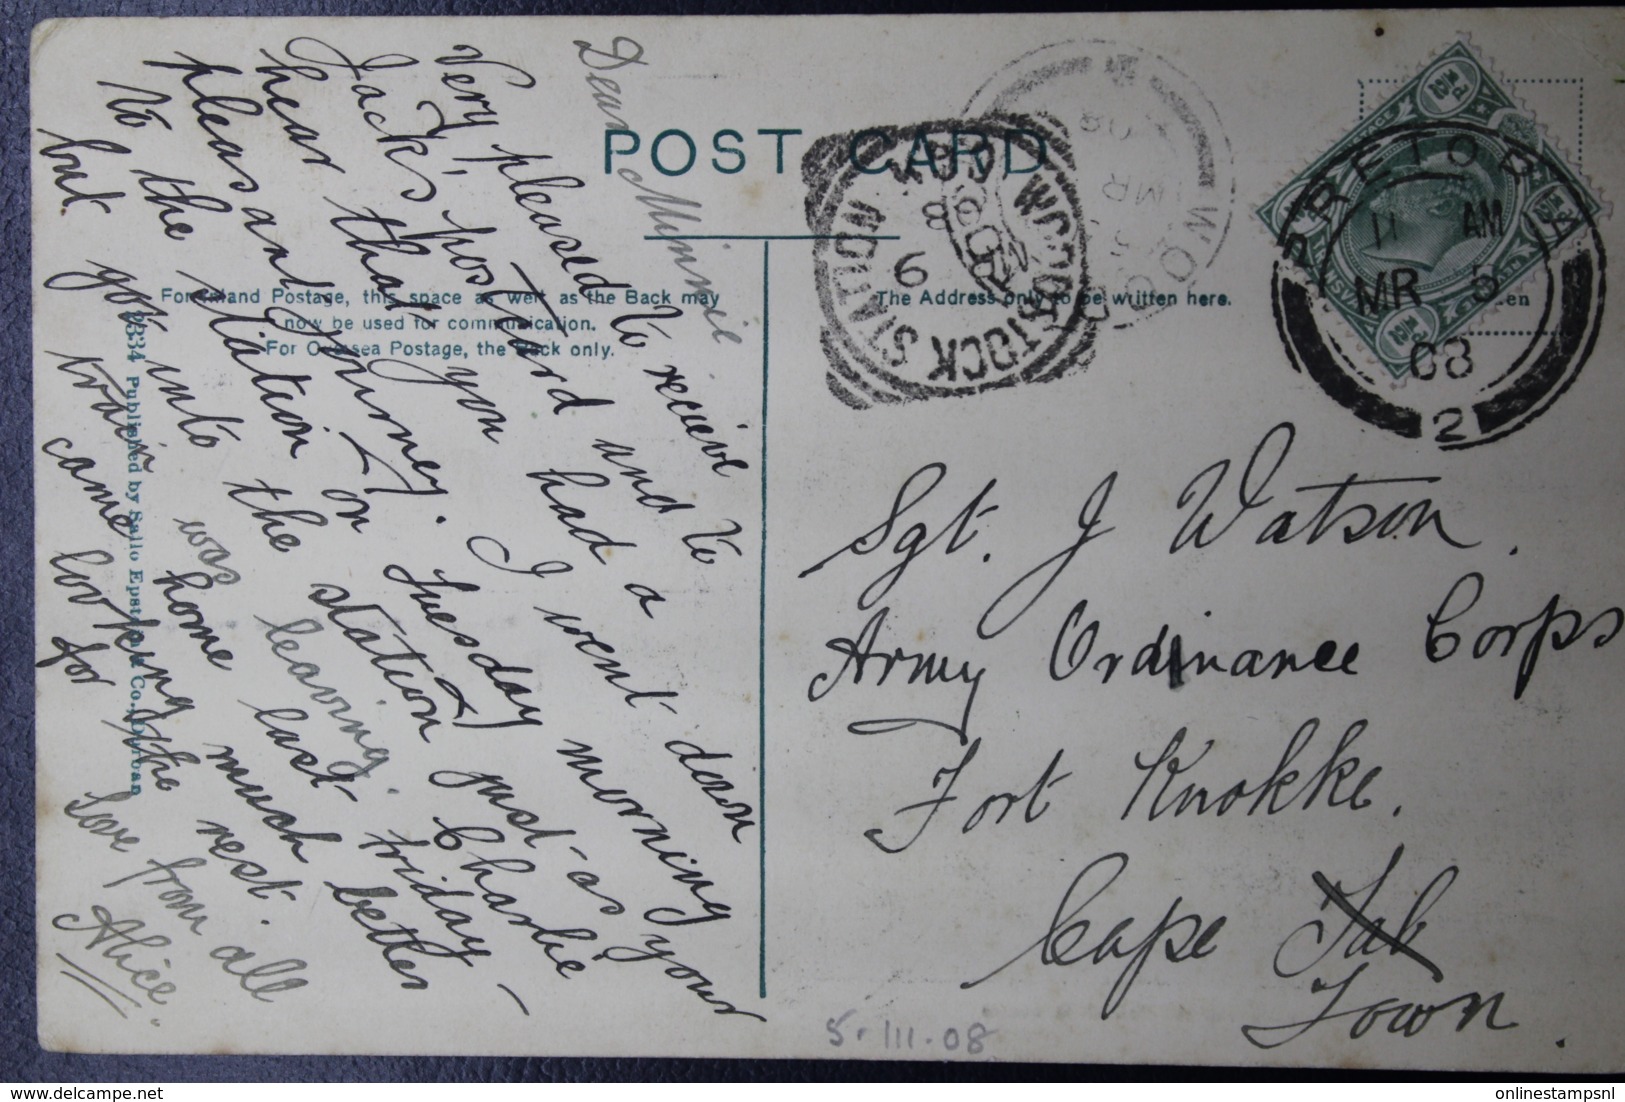 POST CARD
For Inland Postage, this space as well as the Back may
now be used for communication.
For Oversea Postage, the Back only.
The Address only to be written here.
2334 Published by Sallo Epstein & Co., Durban
Dear Minnie
Very pleased to receive
Jack's postcard and to
hear that you had a
pleasant journey. I went down
to the station on tuesday morning
but got into the station just as your
train was leaving. Charlie
came home last friday –
looking much better
for the rest.
love from all
Alice.
PRETORIA
11 AM
MR 5
08
2
WOODSTOCK STATION
Sgt. J Watson.
Army Ordinance Corps
Fort Knokke.
Cape
Town.
5.III.08
onlinestampsnl